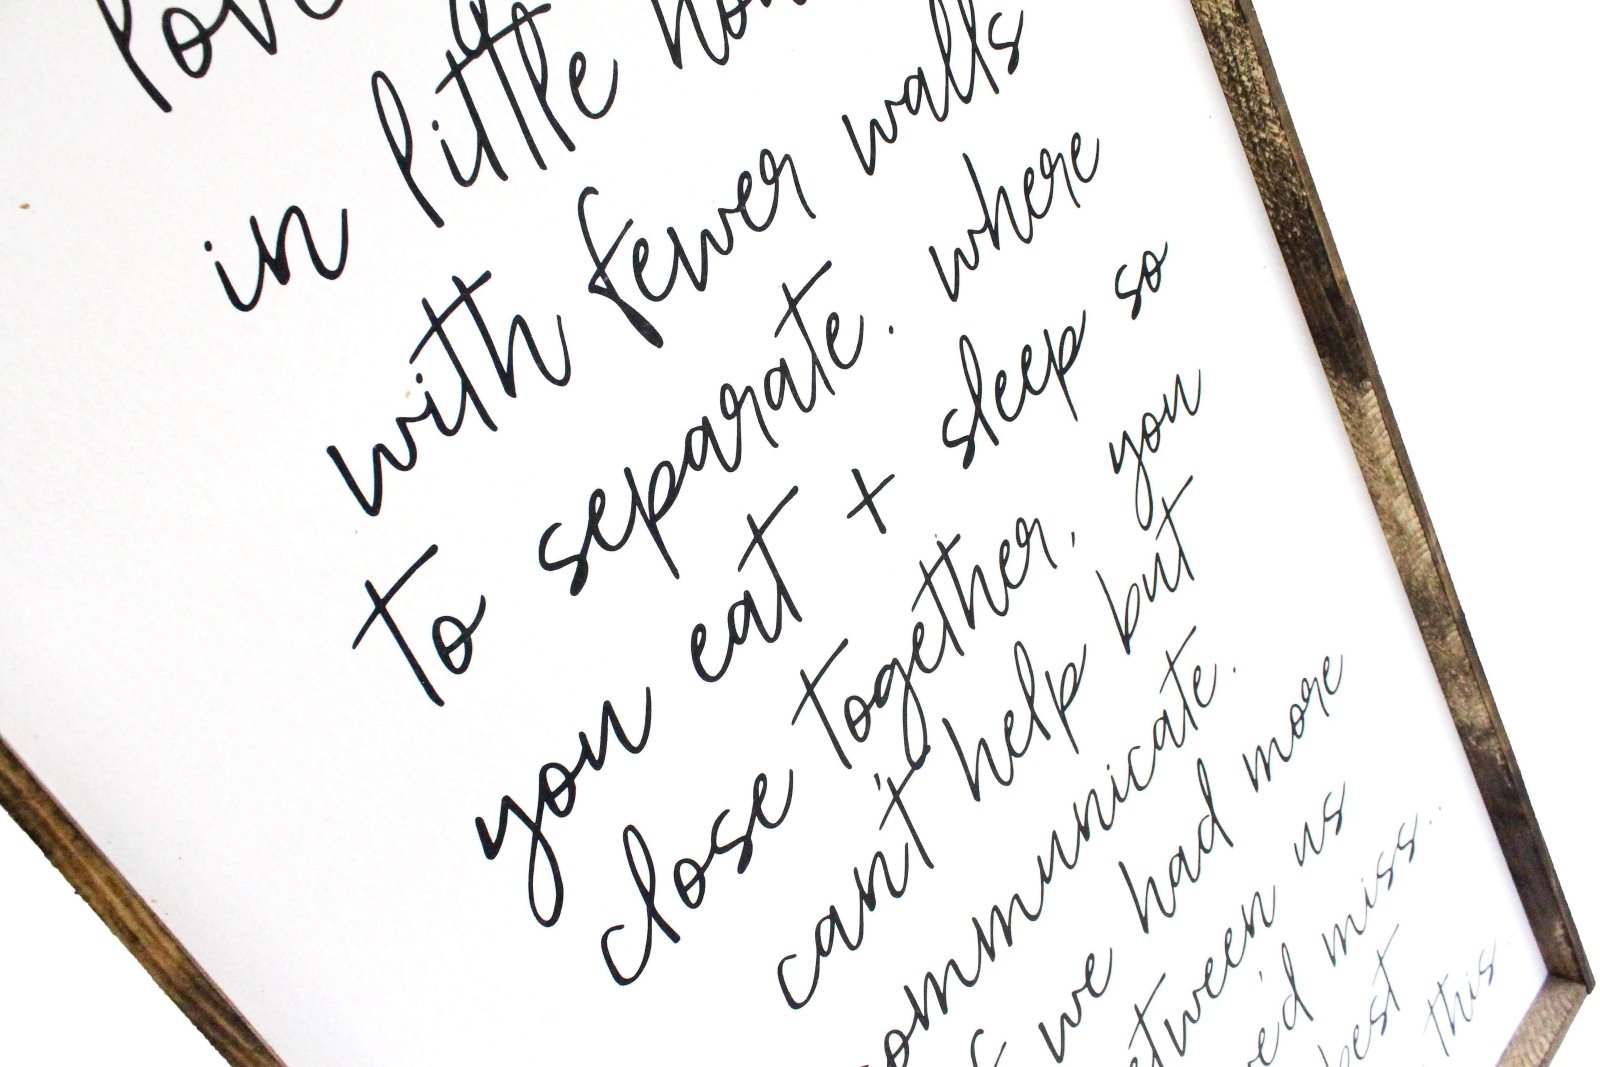 in little
with fewer walls
to separate. where
you eat + sleep so
close together, you
can't help but
communicate.
we had more
between us
miss...
best
this